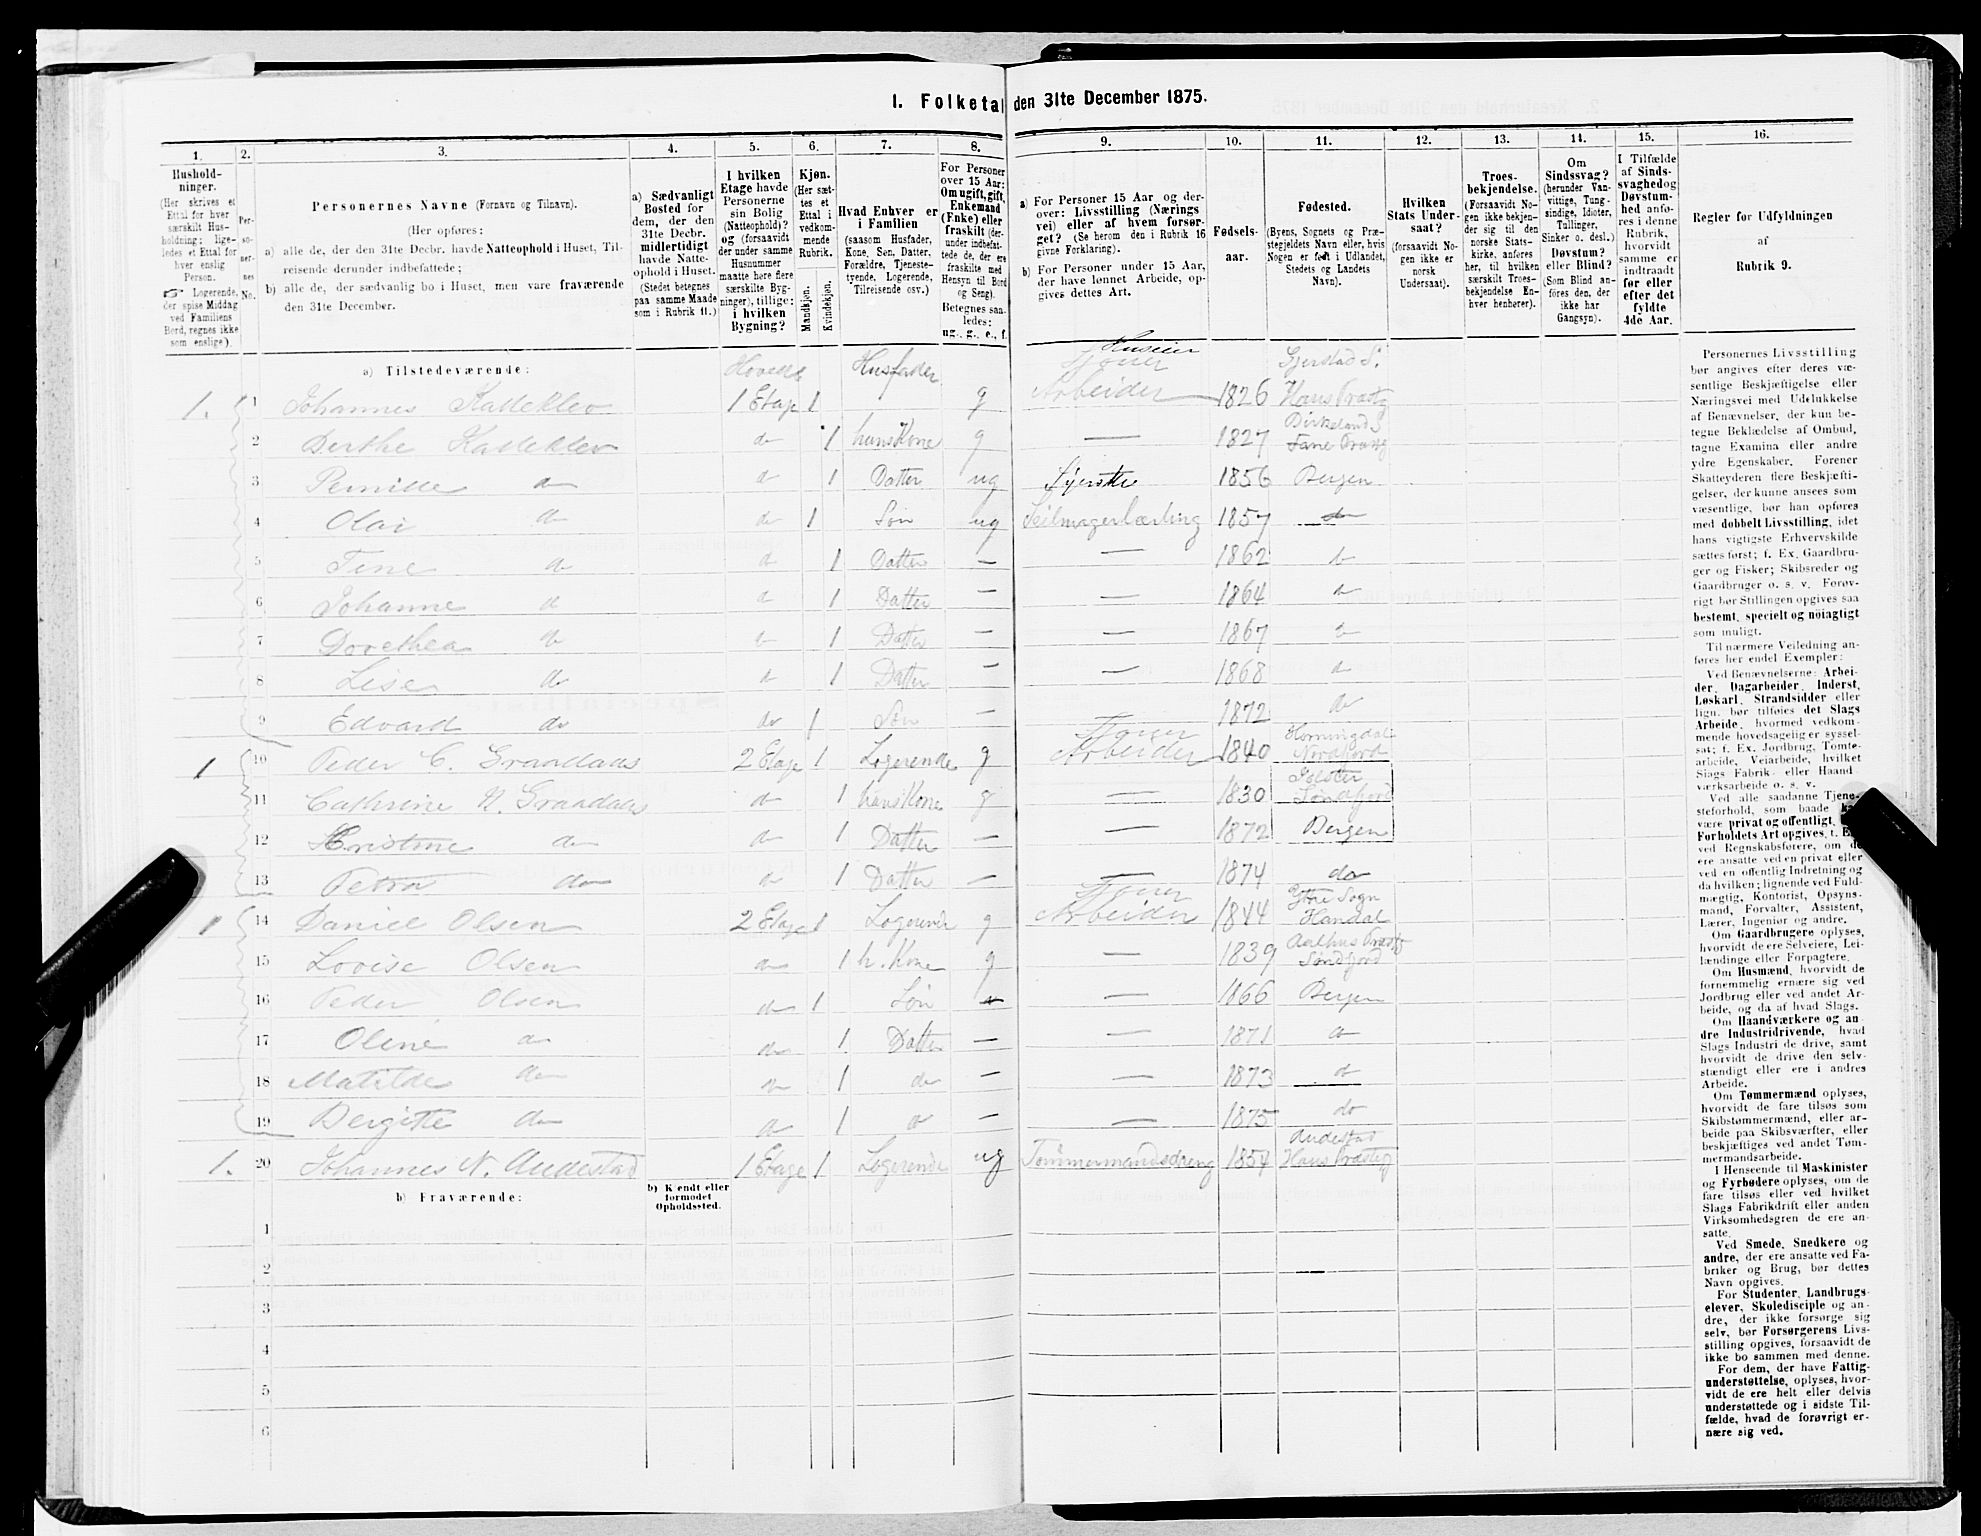 1. Folketal den 31te December 1875.
1. 2. 3. 4. 5. 6. 7. 8. 9. 10. 11. 12. 13. 14. 15. 16.
Hushold-
ninger.
(Her skrives et
Ettal for hver
særskilt Hus-
holdning; lige-
ledes et Ettal for
hver enslig
Person.
☞ Logerende,
der spise Middag
ved Familiens
Bord, regnes ikke
som enslige).
Per-
so-
ner-
nes
No.
Personernes Navne (Fornavn og Tilnavn).
(Her opføres:
a) alle de, der den 31te Decbr. havde Natteophold i Huset, Til-
reisende derunder indbefattede;
b) alle de, der sædvanlig bo i Huset, men vare fraværende
den 31te December.
a) Sædvanligt
Bosted for
dem, der den
31te Decbr.
midlertidigt
havde Natte-
ophold i Huset.
(Stedet betegnes
paa samme Maade
som i Rubrik 11.)
I hvilken
Etage havde
Personerne
sin Bolig
(Natteophold)?
og (forsaavidt
der under samme
Husnummer
maatte høre flere
særskilte Byg-
ninger), tillige:
i hvilken
Bygning?
Kjøn.
(Her sæt-
tes et
Ettal i
vedkom-
mende
Rubrik.
Mandkjøn.
Kvindekjøn.
Hvad Enhver er
i Familien
(saasom Husfader,
Kone, Søn, Datter,
Forældre, Tjeneste-
tyende, Logerende,
Tilreisende osv.)
For Personer
over 15 Aar:
Om ugift, gift,
Enkemand
(Enke) eller
fraskilt (der-
under indbefat-
tede de, der ere
fraskilte med
Hensyn til Bord
og Seng).
Betegnes saa-
ledes:
ug., g., e., f.
a) For Personer 15 Aar og der-
over: Livsstilling (Nærings
vei) eller af hvem forsør-
get? (Se herom den i Rubrik 16
givne Forklaring).
b) For Personer under 15 Aar,
der have lønnet Arbeide, op-
gives dettes Art.
Fødsels-
aar.
Fødested.
(Byens, Sognets og Præ-
stegjeldets Navn eller, hvis
Nogen er født i Udlandet,
Stedets og Landets
Navn).
Hvilken
Stats Under-
saat?
(forsaavidt No-
gen ikke er
norsk
Undersaat).
Troes-
bekjendelse.
(Forsaavidt No-
gen ikke bekjen-
der sig til den
norske Stats-
kirke, anføres
her, til hvilken
særskilt Troes-
bekjendelse En-
hver henhører).
Om
Sindssvag?
(herunder Van-
vittige, Tung-
sindige, Idioter,
Tullinger,
Sinker o. desl.)
Døvstum?
eller Blind?
(Som Blind an-
føres den, der
ikke har
Gangsyn).
I Tilfælde
af Sinds-
svaghed og
Døvstum-
hed anfø-
res i denne
Rubrik,
hvorvidt
samme er
indtraadt
før eller
efter det
fyldte
4de Aar.
Regler for Udfyldningen
af
Rubrik 9.
a) Tilstedeværende:
Husfader Huseier Gjerstad S.
1. 1 Johannes Kalleklev 1 Etage 1 g Arbeider 1826 Haus Præstg
Birkeland S
2 Berthe Kalleklev do 1 hans Kone g — 1827 Fane Præstg
3 Pernille do do 1 Datter ug Syerske 1856 Bergen
4 Olai do do 1 Søn ug Seilmagerlærling 1857 do
5 Tine do do 1 Datter — — 1862 do
6 Johanne do do 1 Datter — — 1864 do
7 Dorethea do do 1 Datter — — 1867 do
8 Lise do do 1 Datter — — 1868 do
9 Edvard do do 1 Søn — 1872 do
Horningdal
1 10 Peder C. Graadaas 2 Etage 1 Logerende g Arbeider 1840 Nordfjord
Jølster
11 Cathrine N. Graadaas do 1 hans Kone g — 1830 Søndfjord
12 Kristine do do 1 Datter — — 1872 Bergen
13 Petra do do 1 Datter — — 1874 do
Ytre Sogn
1 14 Daniel Olsen 2 Etage 1 Logerende g Arbeider 1844
Aalhus Præstg
15 Lovise Olsen do 1 h. Kone g — 1839 Søndfjord
16 Peder Olsen do 1 Søn — 1866 Bergen
17 Oline do do 1 Datter — — 1871 do
18 Matilde do do 1 do — — 1873 do
19 Bergitte do do 1 do — — 1875 do
Andestad
1. 20 Johannes N. Andestad 1 Etage 1 Logerende ug Tømmermandsdreng 1854 Haus Præstg
b) Fraværende:
b) Kjendt eller
formodet
Opholdssted.
1
2
3
4
5
6
Personernes Livsstilling
bør angives efter deres væ-
sentlige Beskjæftigelse eller
Næringsvei med Udelukkelse
af Benævnelser, der kun be-
tegne Beklædelse af Ombud,
tagne Examina eller andre
ydre Egenskaber. Forener
Skatteyderen flere Beskjæfti-
gelser, der kunne ansees som
væsentlige, bør han opføres
med dobbelt Livsstilling, idet
hans vigtigste Erhvervskilde
sættes først; f. Ex. Gaardbru-
ger og Fisker; Skibsreder og
Gaardbruger o. s. v. Forøv-
rigt bør Stillingen opgives saa
bestemt, specielt og nöiagtigt
som muligt.
Til nærmere Veiledning an-
føres her endel Exempler:
Ved Benævnelserne: Arbei-
der, Dagarbeider, Inderst,
Løskarl, Strandsidder eller
lign. bør tilføies det Slags
Arbeide, hvormed vedkom-
mende hovedsagelig er syssel-
sat; f. Ex. Jordbrug, Tomte-
arbeide, Veiarbeide, hvilket
Slags Fabrik- eller Haand-
værksarbeide o. s. v.
Ved alle saadanne Tjene-
steforhold, som baade
være privat og offentlig,
Forholdets Art opgives, f.
ved Regnskabsførere, om de
ere ansatte ved en privat eller
ved en offentlig Indretning og
da hvilken; lignende ved Fuld-
mægtig, Kontorist, Opsyns-
mand, Forvalter, Assistent,
Lærer, Ingeniør og andre.
Om Gaardbrugere oplyses,
hvorvidt de ere Selveiere, Lei-
lændinge eller Forpagtere.
Om Husmænd, hvorvidt de
fornemmelig ernære sig ved
Jordbrug eller ved andet Ar-
beide, og da af hvad Slags.
Om Haandværkere og an-
dre Industridrivende, hvad
Slags Industri de drive, samt
hvorvidt de drive den selv-
stændigt eller ere i andres
Arbeide.
Om Tømmermænd oplyses,
hvorvidt de fare tilsøs som
Skibstømmermænd, eller ar-
beide paa Skibsværfter, eller
beskjæftiges ved andet Tøm-
mermandsarbeide.
I Henseende til Maskinister
og Fyrbødere oplyses, om de
fare tilsøs eller ved hvilket
Slags Fabrikdrift eller anden
Virksomhedsgren de ere an-
satte.
Ved Smede, Snedkere og
andre, der ere ansatte ved Fa-
briker og Brug, bør dettes
Navn opgives.
For Studenter, Landbrugs-
elever, Skoledisciple og an-
dre, der ikke forsørge sig
selv, bør Forsørgerens Livs-
stilling opgives, forsaavidt de
ikke bo sammen med denne.
For dem, der have Fattig-
understøttelse, oplyses, hvor-
vidt de ere helt eller delvis
understøttede og i sidste Til-
fælde, hvad de forøvrigt er-
nære sig ved.